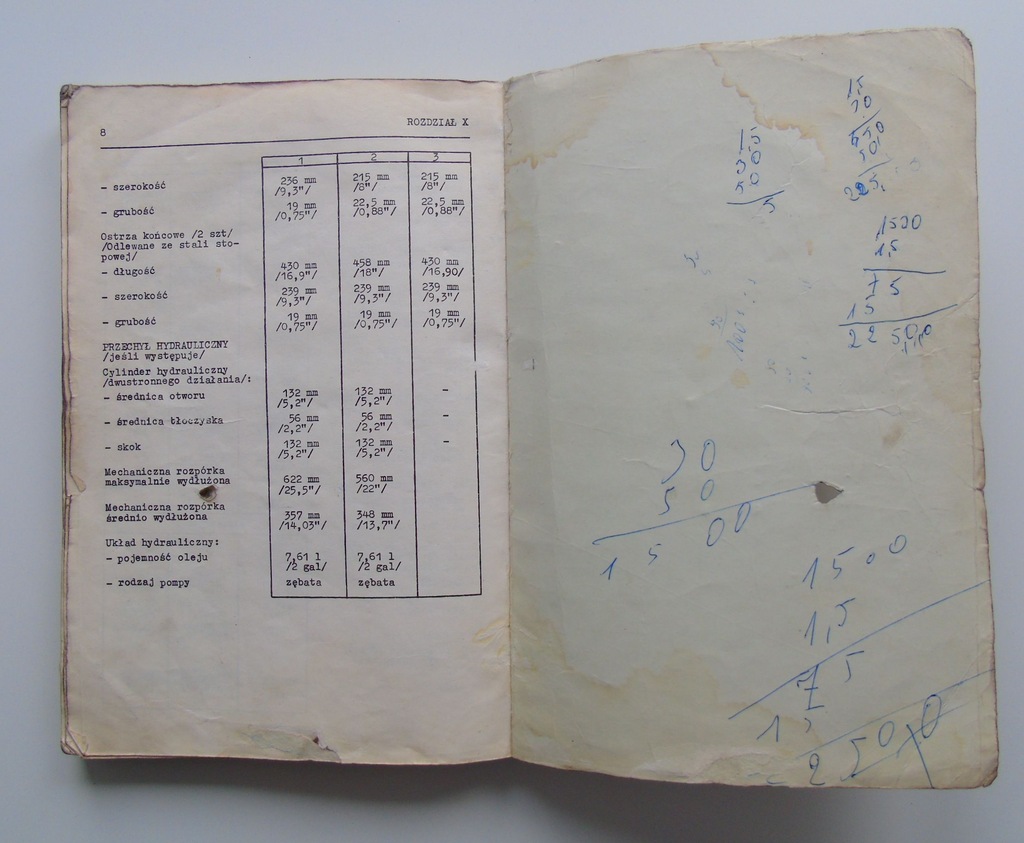 8 ROZDZIAŁ X
1 2 3
- szerokość 236 mm 215 mm 215 mm
/9,3"/ /8"/ /8"/
- grubość 19 mm 22,5 mm 22,5 mm
/0,75"/ /0,88"/ /0,88"/
Ostrza końcowe /2 szt/
/Odlewane ze stali sto-
powej/
- długość 430 mm 458 mm 430 mm
/16,9"/ /18"/ /16,90/
- szerokość 239 mm 239 mm 239 mm
/9,3"/ /9,3"/ /9,3"/
- grubość 19 mm 19 mm 19 mm
/0,75"/ /0,75"/ /0,75"/
PRZECHYŁ HYDRAULICZNY
/jeśli występuje/
Cylinder hydrauliczny
/dwustronnego działania/:
- średnica otworu 132 mm 132 mm -
/5,2"/ /5,2"/
- średnica tłoczyska 56 mm 56 mm -
/2,2"/ /2,2"/
- skok 132 mm 132 mm -
/5,2"/ /5,2"/
Mechaniczna rozpórka
maksymalnie wydłużona 622 mm 560 mm
/25,5"/ /22"/
Mechaniczna rozpórka
średnio wydłużona 357 mm 348 mm
/14,03"/ /13,7"/
Układ hydrauliczny:
- pojemność oleju 7,61 l 7,61 l
/2 gal/ /2 gal/
- rodzaj pompy zębata zębata
1500
1,5
75
15
22 500
30
50
1500
1500
1,5
75
15